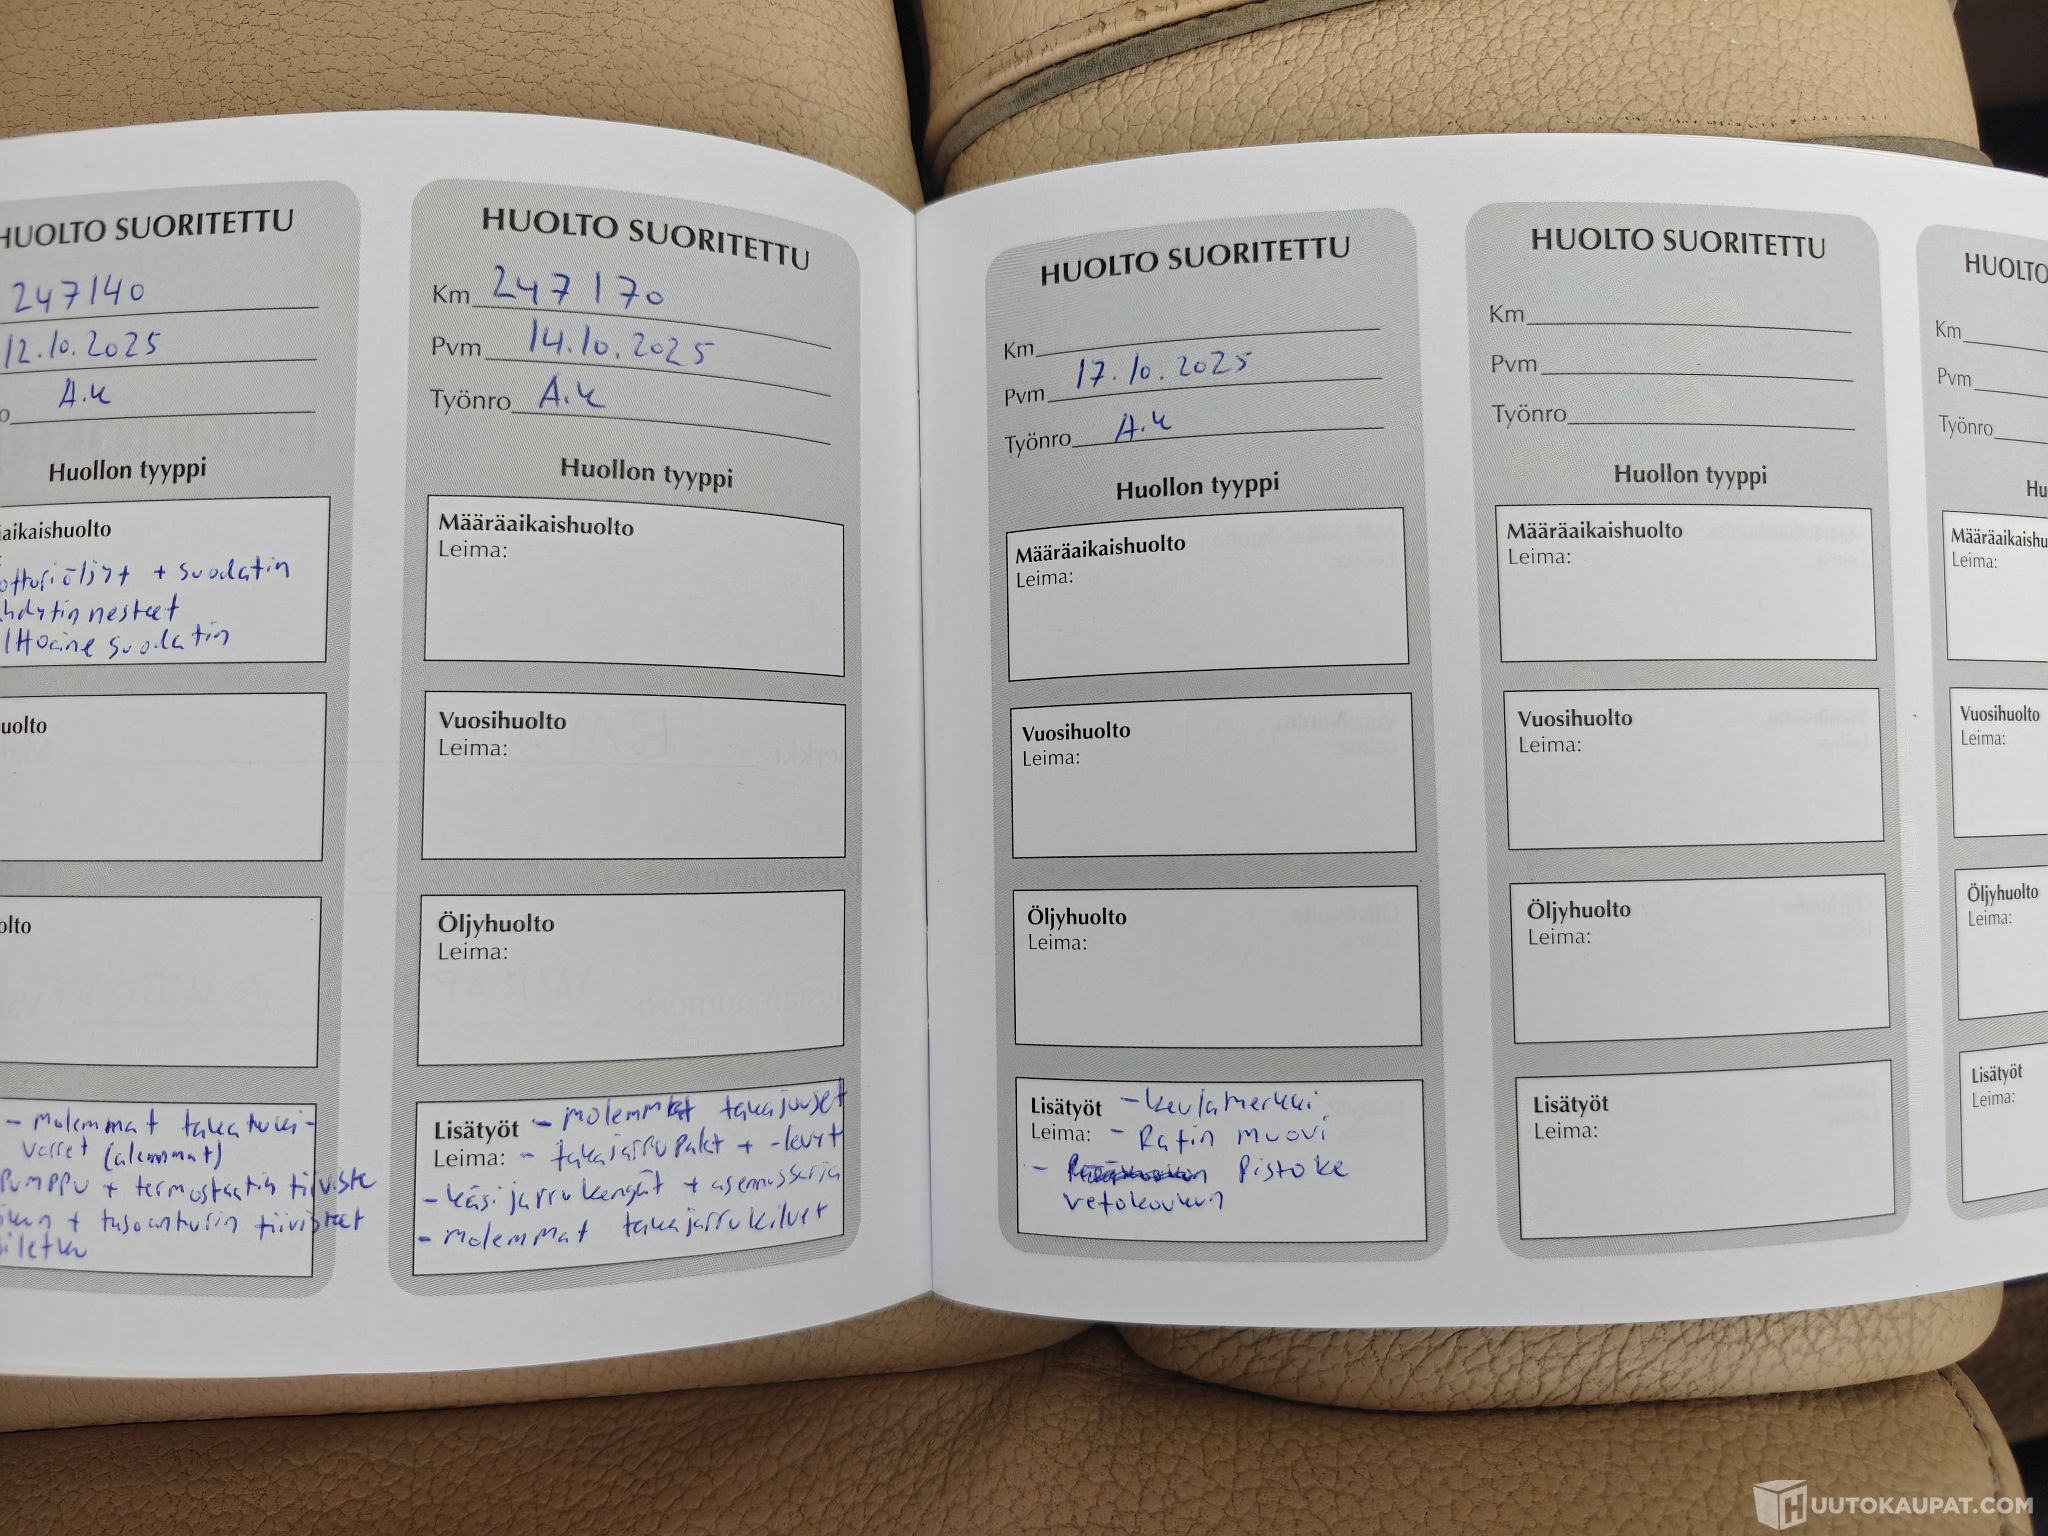 HUOLTO SUORITETTU
247140
12.10.2025
A.K
Huollon tyyppi
aikaishuolto
ottoriöljyt + suodatin
hdytin nesteet
suodatin
uolto
olto
- molemmat takatuki-
varret (alemmat)
pumppu + termostaatin tiiviste
+ tasoanturin tiivisteet
HUOLTO SUORITETTU
Km 247170
Pvm 14.10.2025
Työnro A.K
Huollon tyyppi
Määräaikaishuolto
Leima:
Vuosihuolto
Leima:
Öljyhuolto
Leima:
Lisätyöt - molemmat takajouset
Leima: - takajarrupalat + -levyt
- käsijarrukengät + asennussarja
- molemmat takajarrukilvet
HUOLTO SUORITETTU
Km
Pvm 17.10.2025
Työnro A.K
Huollon tyyppi
Määräaikaishuolto
Leima:
Vuosihuolto
Leima:
Öljyhuolto
Leima:
Lisätyöt - keulamerkki
Leima: - Ratin muovi
- Pistoke
vetokoukun
HUOLTO SUORITETTU
Km
Pvm
Työnro
Huollon tyyppi
Määräaikaishuolto
Leima:
Vuosihuolto
Leima:
Öljyhuolto
Leima:
Lisätyöt
Leima:
HUOLTO
Km
Pvm
Työnro
Hu
Määräaikaishu
Leima:
Vuosihuolto
Leima:
Öljyhuolto
Leima:
Lisätyöt
Leima:
HUUTOKAUPAT.COM